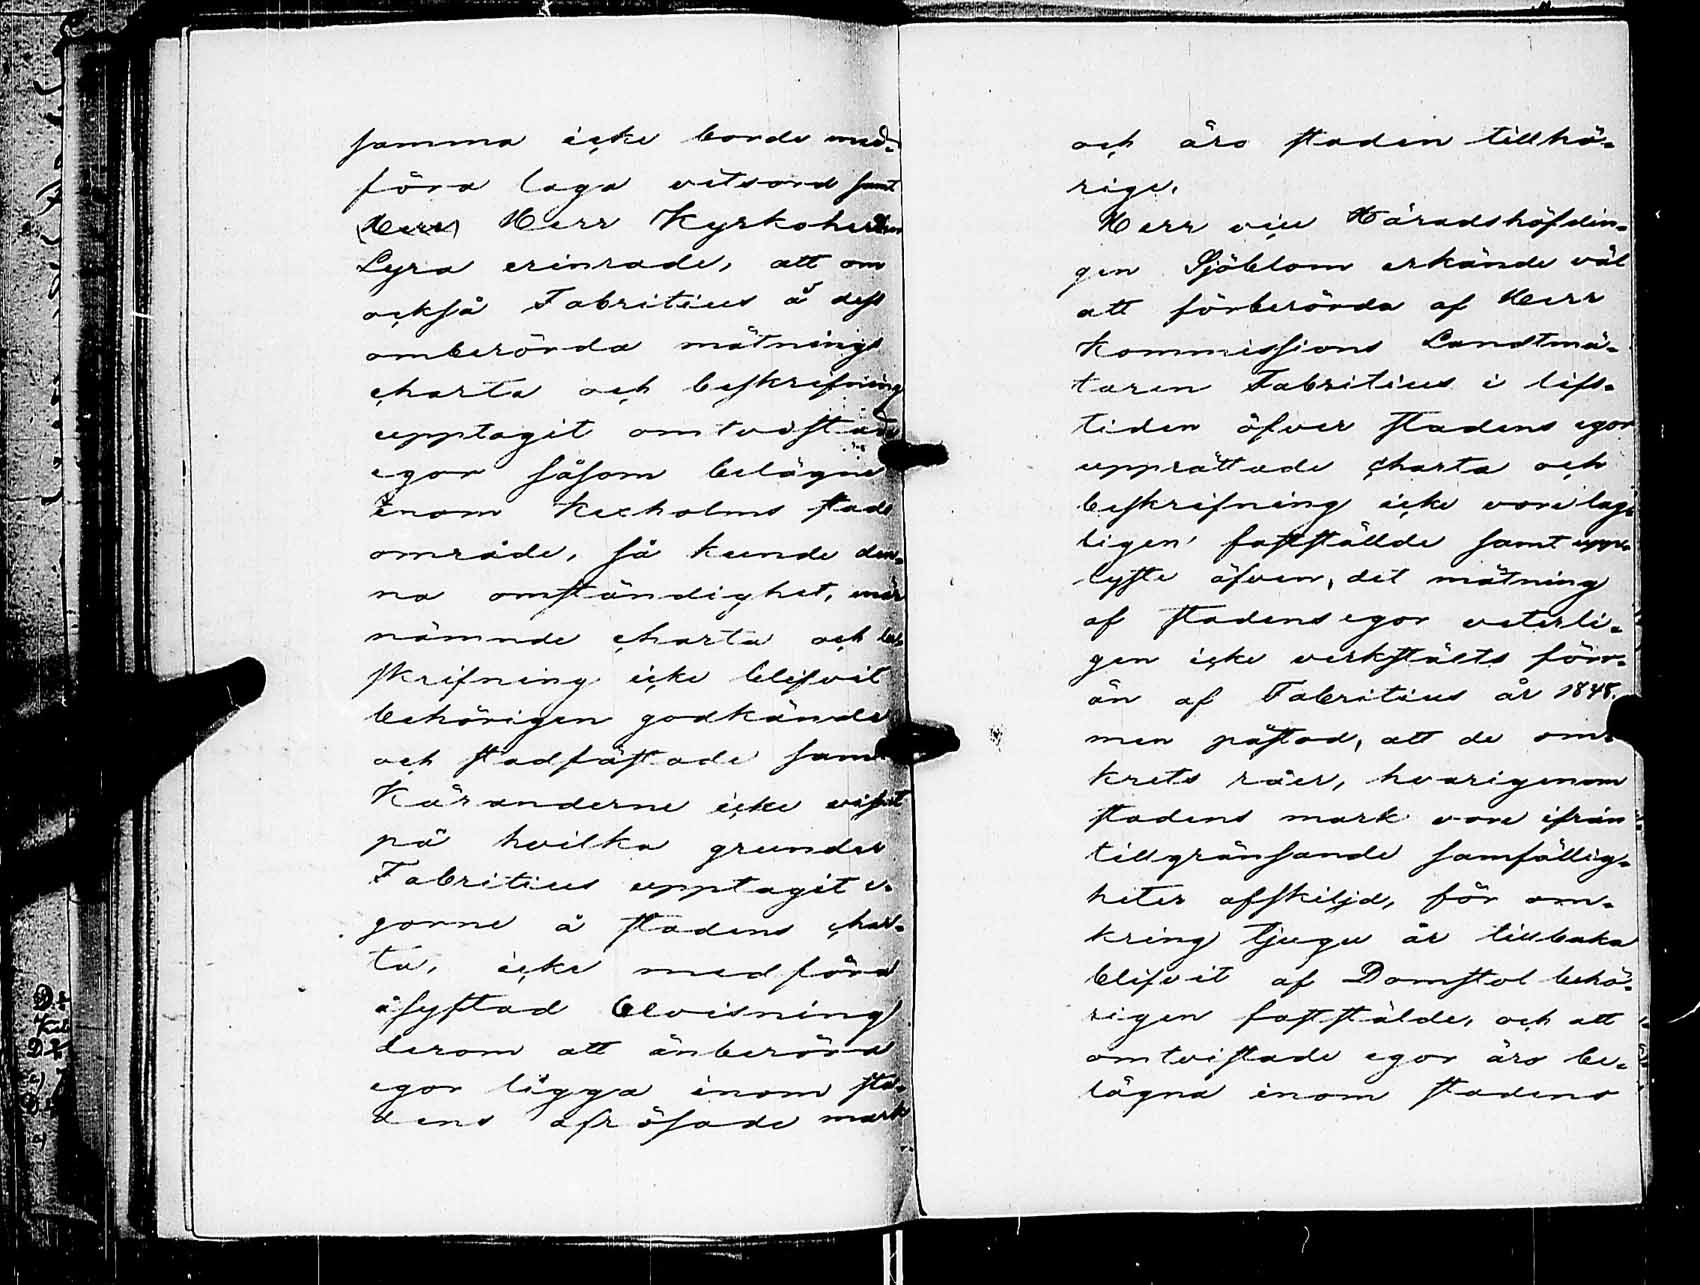 samma icke borde med-
föra laga vitsord samt
(Herr) Herr Kyrkoherden
Lyra erinrade, att om
också Fabritius å dess
omberörda mätnings
charta och beskrifning
upptagit omtvistade
egor såsom belägne
inom Kexholms stads
område, så kunde den-
na omständighet, när
nämnde charta och be-
skrifning icke blifvit
behörigen godkände
och stadfästade samt
Käranderne icke visat
på hvilka grunder
Fabritius upptagit e-
gorne å stadens char-
ta, icke medföra
åsyftad bevisning
derom att ånberörda
egor ligga inom sta-
dens afrösade mark
och äro staden tillhö-
rige.
Herr vice Häradshöfdin-
gen Sjöblom erkände väl
att förberörda af Herr
Kommissions Landtmä-
taren Fabritius i lifs-
tiden öfver stadens egor
upprättade charta och
beskrifning icke vore lag-
ligen fastställde samt upp-
lyste äfven, det mätning
af stadens egor veterli-
gen icke verkstälts förr-
än af Fabritius år 1848.
men påstod, att de om-
krets råer, hvarigenom
stadens mark vore ifrån
tillgränsande samfällig-
heter afskiljd, för om-
kring tjugu år tillbaka
blifvit af Domstol behö-
rigen fastställde, och att
omtvistade egor äro be-
lägna inom stadens